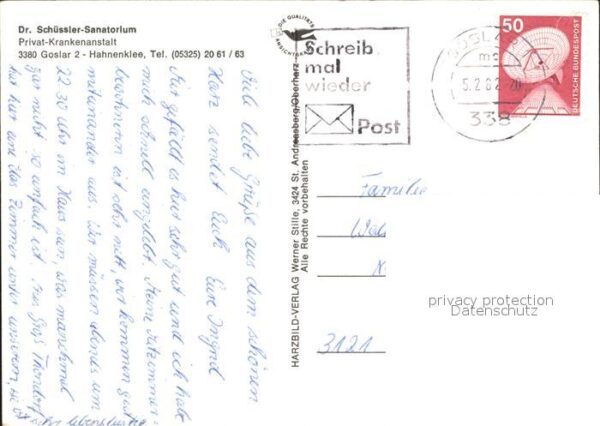 Dr. Schüssler-Sanatorium
Privat-Krankenanstalt
3380 Goslar 2 - Hahnenklee, Tel. (05325) 20 61 / 63
Viele liebe Grüße aus dem schönen
Harz sendet Euch Eure Ingrid
Hier gefällt es mir sehr gut und ich habe
mich schnell eingelebt. Meine
ist sehr nett, wir kommen gut
miteinander aus. Wir müssen abends um
22.30 Uhr im Haus sein, was manchmal
gar nicht so einfach ist. Frau
hat hier das Zimmer unter unserem,
ist sehr
DIE QUALITÄTS
ANSICHTSKARTE
Schreib
mal
wieder
Post
GOSLAR
5.2.82-20
338
50
DEUTSCHE BUNDESPOST
HARZBILD-VERLAG Werner Stille, 3424 St. Andreasberg/Oberharz
Alle Rechte vorbehalten
Familie
3121
privacy protection
Datenschutz